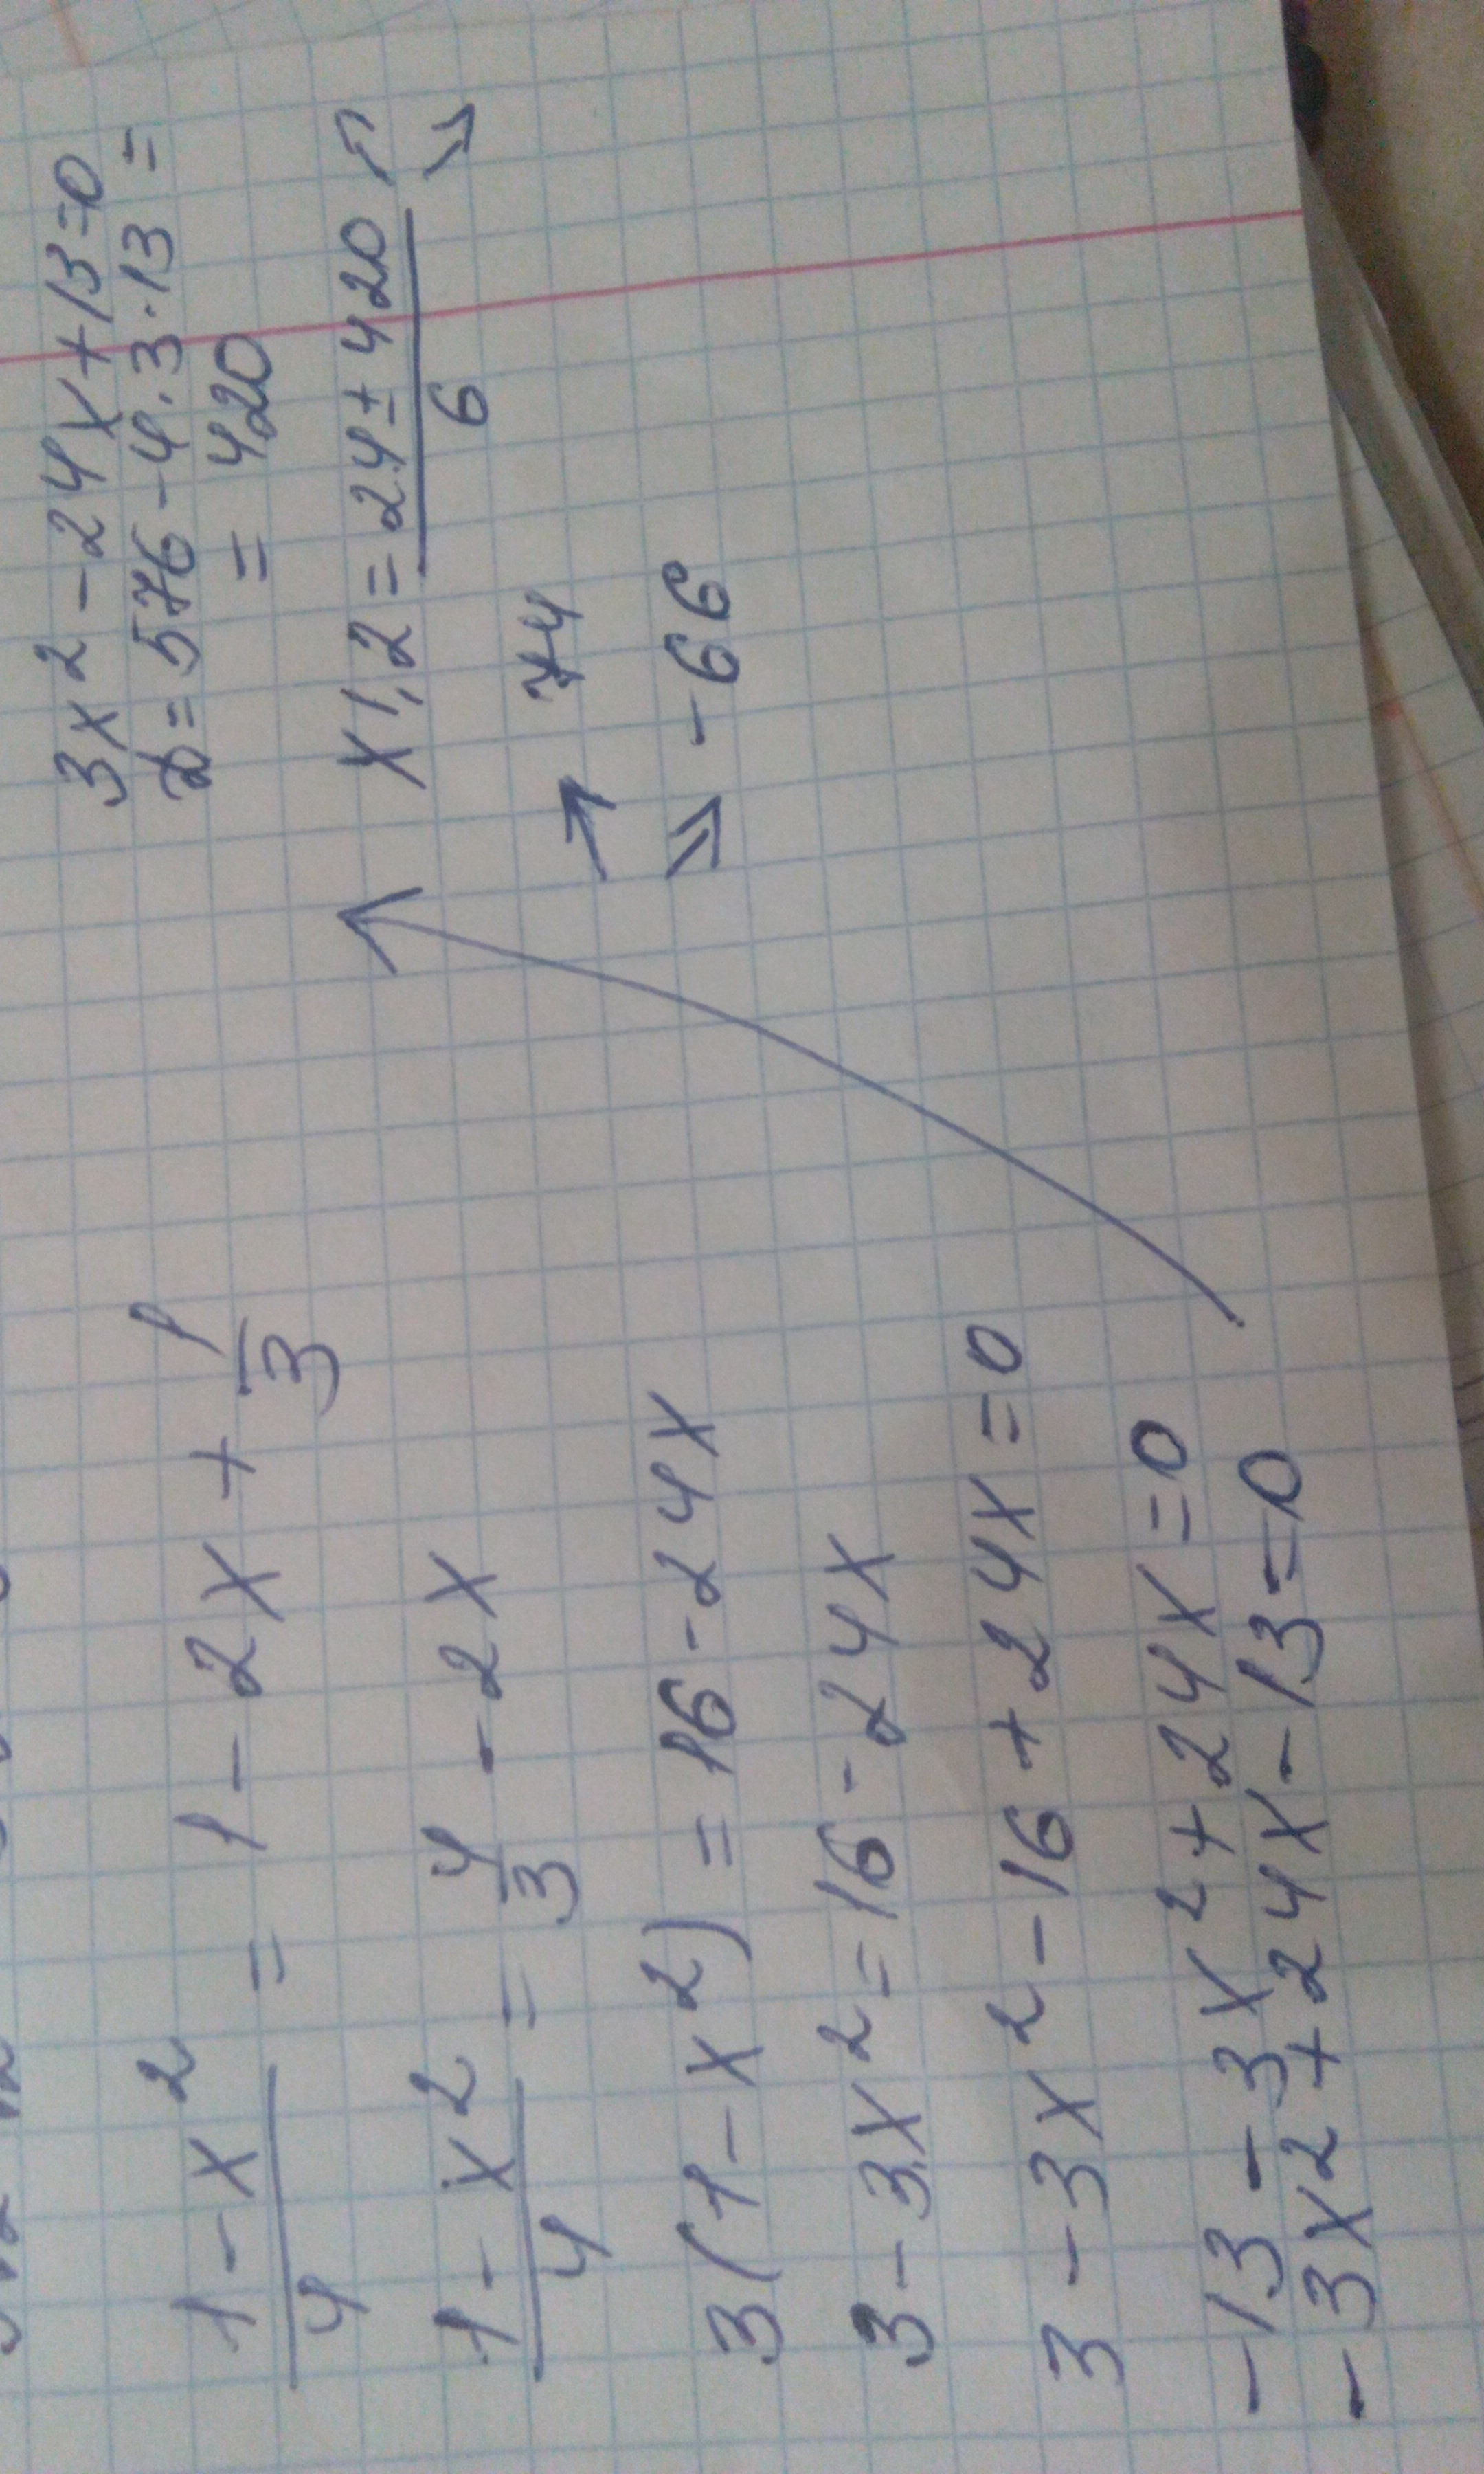 1-x² / 4 = 1-2x + 1/3
1-x² / 4 = 4/3 - 2x
3(1-x²) = 16-24x
3-3x²=16-24x
3-3x²-16+24x=0
-13-3x²+24x=0
-3x²+24x-13=0
3x²-24x+13=0
D=576-4·3·13=
=420
x1,2=24±420 / 6
74
-66